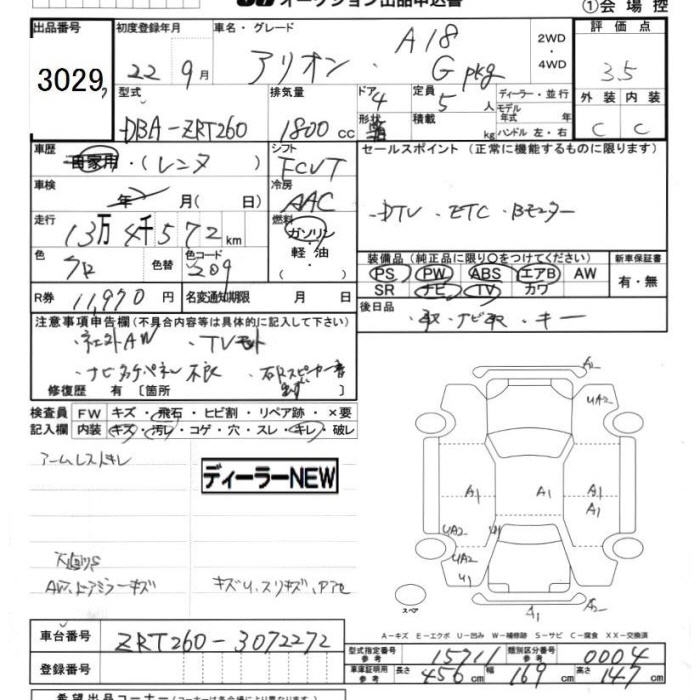 オークション出品申込書
①会場控
出品番号 初度登録年月 車名・グレード 評価点
3029 22年9月 アリオン・A18 G pkg 2WD・4WD 3.5
型式 排気量 ドア 定員 ディーラー・並行 外装 内装
DBA-ZRT260 1800cc 4 5人 モデル年式 年
形状 積載 kg ハンドル 左・右 C C
車歴 自家用・(レンタ) シフト FCVT セールスポイント (正常に機能するものに限ります)
車検 年 月(日) 冷房 AAC
DTV・ETC・Bモニター
走行 13万4千572km 燃料 ガソリン・軽油・( )
色 クロ 色替 色コード 209
装備品 (純正品に限り○をつけてください) 新車保証書
PS PW ABS エアB AW 有・無
SR ナビ TV カワ
R券 11,970円 名変通知期限 月 日
後日品 ・取・ナビ取・キー
注意事項申告欄 (不具合内容等は具体的に記入して下さい)
・社外AW ・TVモニット
・ナビタッチパネル不良
修復歴 有 [箇所
検査員記入欄 FW キズ・飛石・ヒビ割・リペア跡・×要
内装 キズ・汚レ・コゲ・穴・スレ・キレ・破レ
アームレストキレ
ディーラーNEW
AW、ドアミラーキズ
A2
UA2
A1 A1 A1
A1
UA2
UA2
U1
A1 A2
スペア
A-キズ E-エクボ U-凹み W-補修跡 S-サビ C-腐食 XX-交換済
車台番号 ZRT260-3072272
型式指定番号 参考 15711 類別区分番号 参考 0004
登録番号
車庫証明用 参考 長さ 456cm 幅 169cm 高さ 147cm
希望出品コーナー